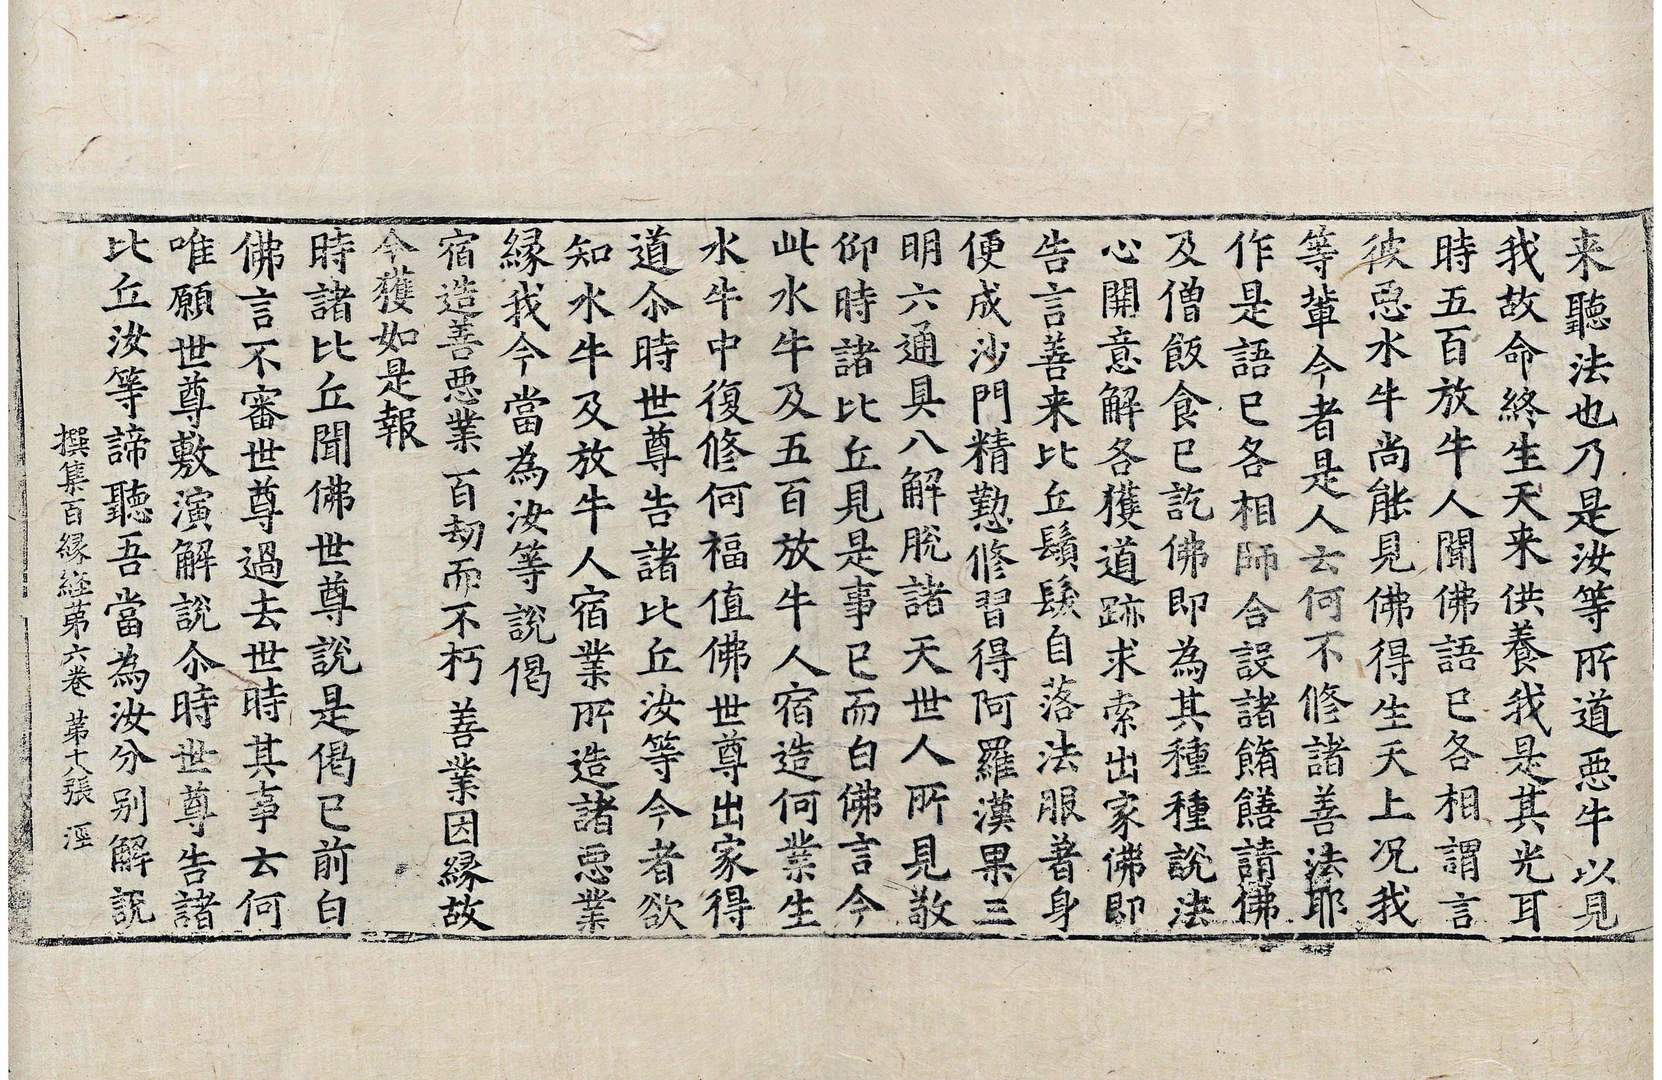 来聽法也乃是汝等所道惡牛以見
我故命終生天来供養我是其光耳
時五百放牛人聞佛語已各相謂言
彼惡水牛尚能見佛得生天上况我
等輩今者是人云何不修諸善法耶
作是語已各相師合設諸餚饍請佛
及僧飯食已訖佛即為其種種說法
心開意解各獲道跡求索出家佛即
告言善来比丘鬚髮自落法服著身
便成沙門精懃修習得阿羅漢果三
明六通具八解脫諸天世人所見敬
仰時諸比丘見是事已而白佛言今
此水牛及五百放牛人宿造何業生
水牛中復修何福值佛世尊出家得
道尒時世尊告諸比丘汝等今者欲
知水牛及放牛人宿業所造諸惡業
緣我今當為汝等說偈
宿造善惡業 百劫而不朽 善業因緣故
今獲如是報
時諸比丘聞佛世尊說是偈已前白
佛言不審世尊過去世時其事云何
唯願世尊敷演解說尒時世尊告諸
比丘汝等諦聽吾當為汝分別解說
撰集百緣經第六卷 第十八張 涇